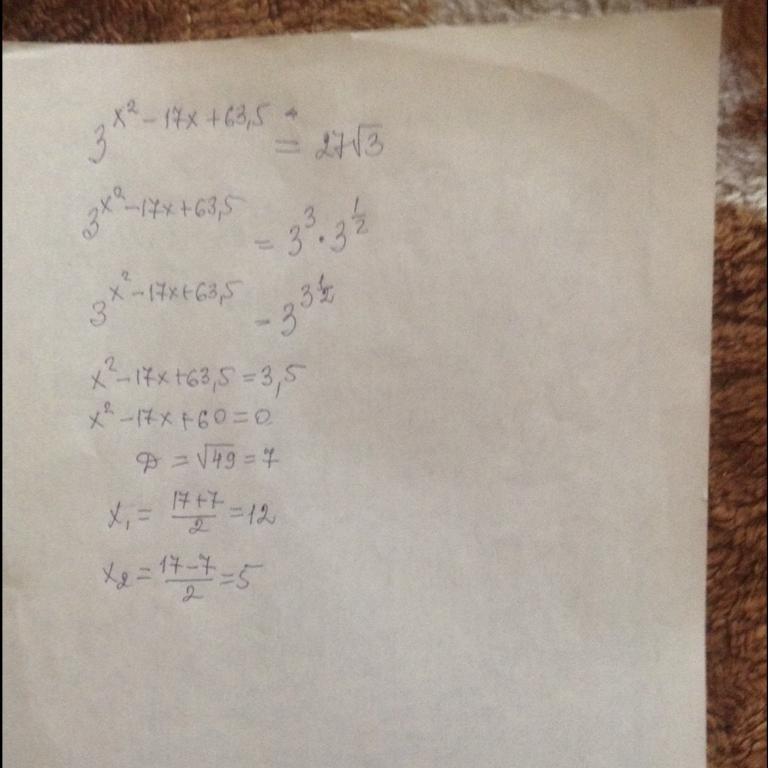 3^{x²-17x+63,5} = 27√3
3^{x²-17x+63,5} = 3³·3^{1/2}
3^{x²-17x+63,5} = 3^{3 1/2}
x²-17x+63,5=3,5
x²-17x+60=0
D=√49=7
x₁=(17+7)/2=12
x₂=(17-7)/2=5